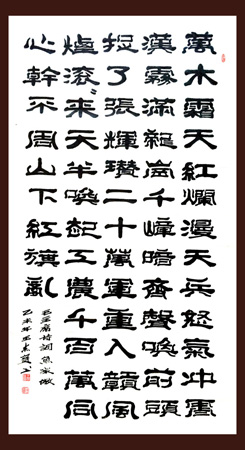 萬木霜天紅爛漫天兵怒氣沖霄
漢霧滿龍崗千嶂暗齊聲喚前頭
捉了張輝瓚二十萬軍重入贛風
煙滾〻來天半喚起工農千百萬同
心幹不周山下紅旗亂
毛主席詩詞魚家傲
乙未年